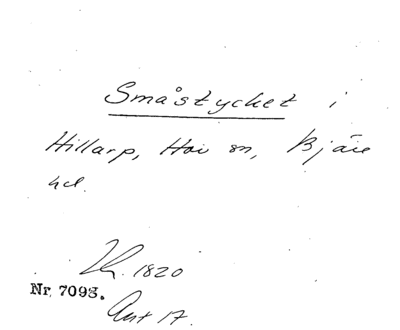 Småstycket i
Hillarp, Hov sn, Bjäre
hd.
Th. 1820
Nr 7093.
Ant 17.